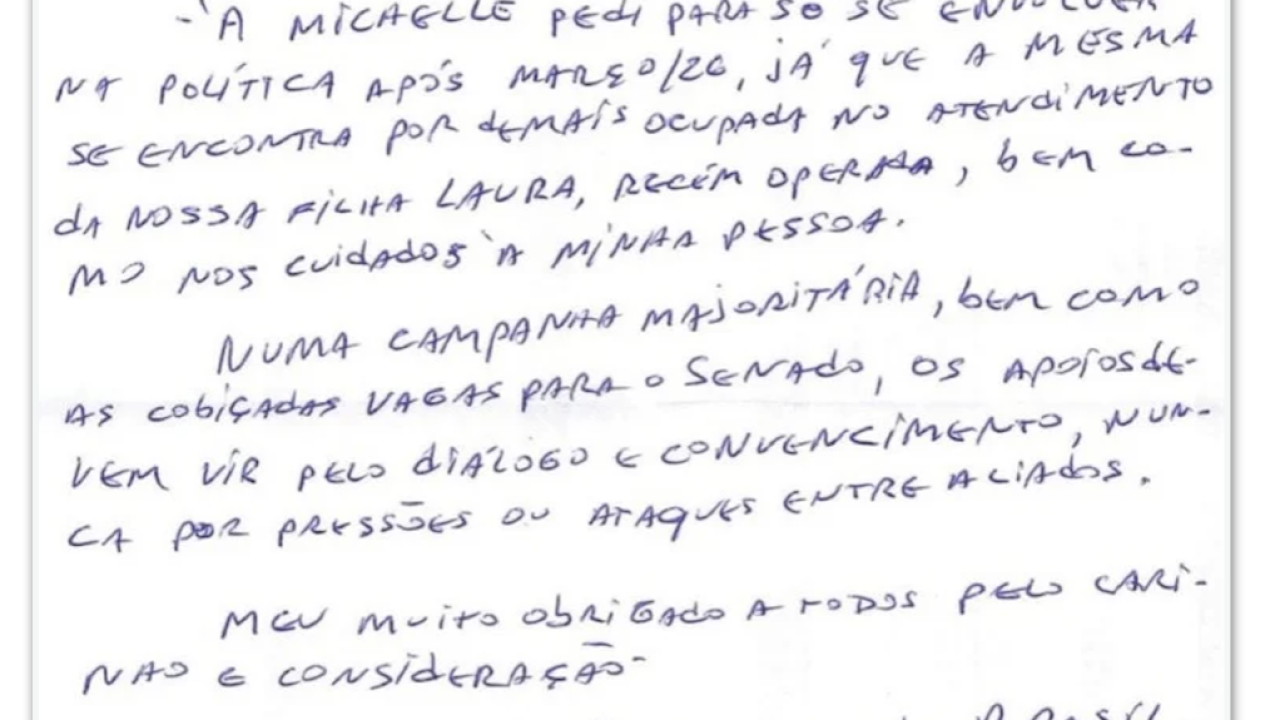 - À MICHELLE PEDI PARA SÓ SE ENVOLVER
NA POLÍTICA APÓS MARÇO/26, JÁ QUE A MESMA
SE ENCONTRA POR DEMAIS OCUPADA NO ATENDIMENTO
DA NOSSA FILHA LAURA, RECÉM OPERADA, BEM CO-
MO NOS CUIDADOS À MINHA PESSOA.
NUMA CAMPANHA MAJORITÁRIA, BEM COMO
AS COBIÇADAS VAGAS PARA O SENADO, OS APOIOS DE-
VEM VIR PELO DIÁLOGO E CONVENCIMENTO, NUN-
CA POR PRESSÕES OU ATAQUES ENTRE ALIADOS.
MEU MUITO OBRIGADO A TODOS PELO CARI-
NHO E CONSIDERAÇÃO-